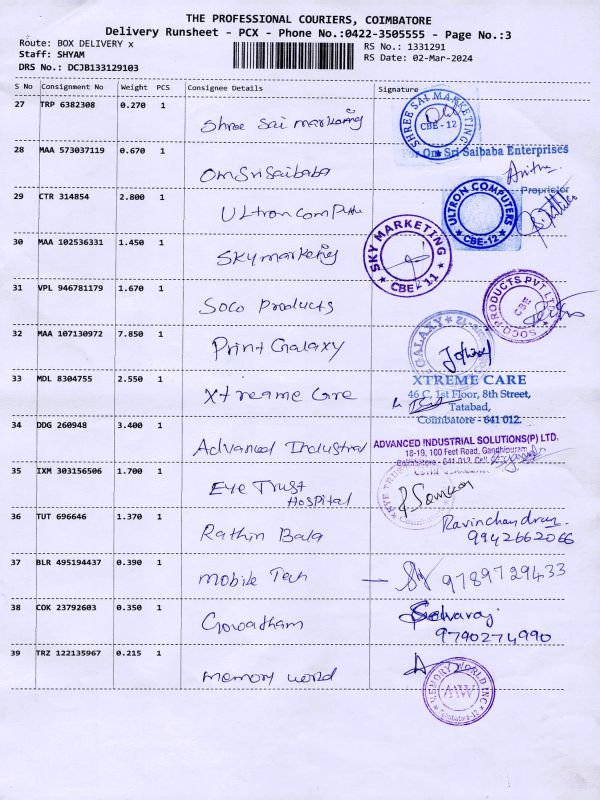 THE PROFESSIONAL COURIERS, COIMBATORE
Delivery Runsheet - PCX - Phone No.:0422-3505555 - Page No.:3
Route: BOX DELIVERY x
RS No.: 1331291
Staff: SHYAM
RS Date: 02-Mar-2024
DRS No.: DCJB133129103
S No Consignment No Weight PCS Consignee Details Signature
27 TRP 6382308 0.270 1 Shree Sai marketing
SHREE SAI MARKETING CBE-12
28 MAA 573037119 0.670 1 Om Sri Saibaba
For Om Sri Saibaba Enterprises
Proprietor
29 CTR 314854 2.800 1 ULtron Compute
ULTRON COMPUTERS CBE-12
30 MAA 102536331 1.450 1 SKY marketing
SKY MARKETING CBE-11
31 VPL 946781179 1.670 1 Soco Products
SOCO PRODUCTS PVT LTD CBE
32 MAA 107130972 7.850 1 Print Galaxy
GALAXY
33 MDL 8304755 2.550 1 Xtreame Care
XTREME CARE
46 C, 1st Floor, 8th Street,
Tatabad,
Coimbatore - 641 012.
34 DDG 260948 3.400 1 Advanced Industrial
ADVANCED INDUSTRIAL SOLUTIONS(P) LTD.
18-19, 100 Feet Road, Gandhipuram
Coimbatore - 641 012. Cell
35 IXM 303156506 1.700 1 Eye Trust
Hospital
EYE TRUST Coimbatore
36 TUT 696646 1.370 1 Rathin Bala
Ravinchandran.
9942662066
37 BLR 495194437 0.390 1 mobile Tech
9789729433
38 COK 23792603 0.350 1 Gowatham
Selvaraj
9790274990
39 TRZ 122135967 0.215 1 memory world
MEMORY WORLD INC MW Coimbatore-12